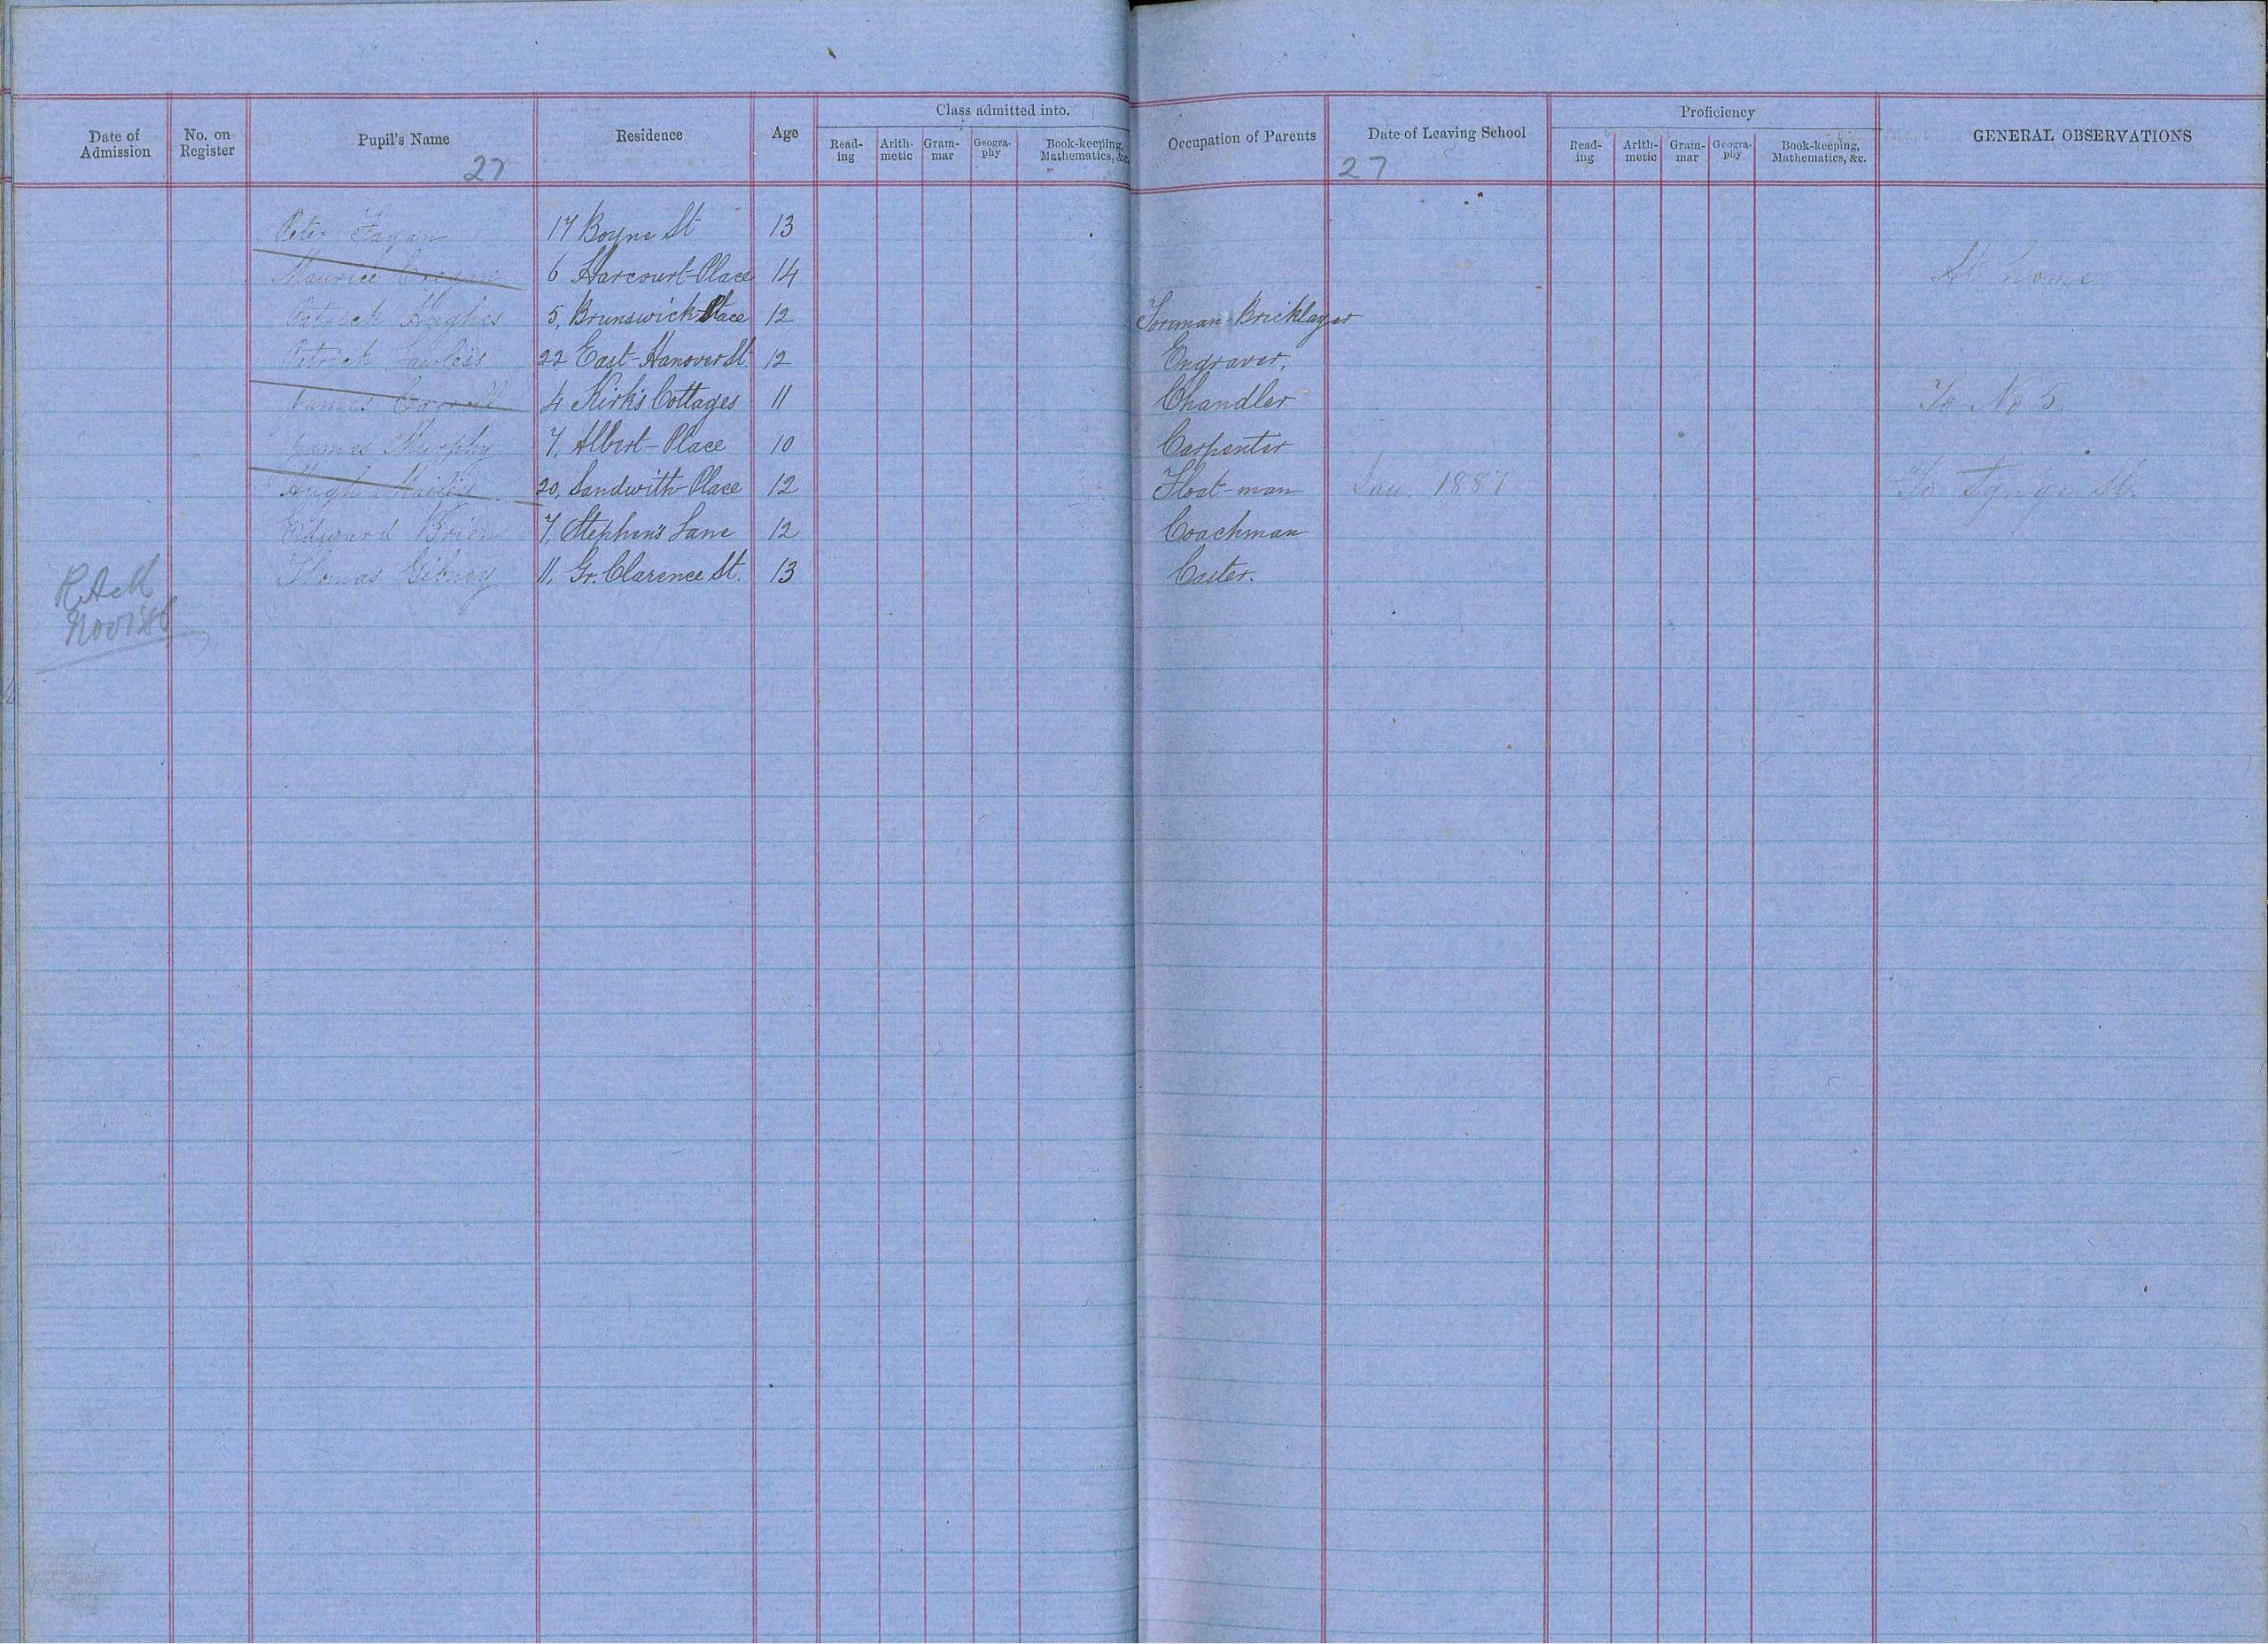 Class admitted into. Proficiency
Date of Admission No. on Register Pupil's Name Residence Age Read-ing Arith-metic Gram-mar Geogra-phy Book-keeping, Mathematics, &c. Occupation of Parents Date of Leaving School Read-ing Arith-metic Gram-mar Geogra-phy Book-keeping, Mathematics, &c. GENERAL OBSERVATIONS
27 27
Peter Fagan 17 Boyne St 13
Maurice 6 Harcourt-Place 14 At home
Patrick Hughes 5, Brunswick Place 12 Forman Bricklayer
Patrick Lawless 22 East-Hanover St. 12 Engraver.
James Carroll 4 Kirk's Cottages 11 Chandler To No 5
James Murphy 7, Albert-Place 10 Carpenter
Hugh 20, Sandwith-Place 12 Float-man Jan. 1887 To St.
Edward Brien 7, Stephen's Lane 12 Coachman
Thomas Gibney 11, Gr. Clarence St. 13 Caster.
Nov 1886